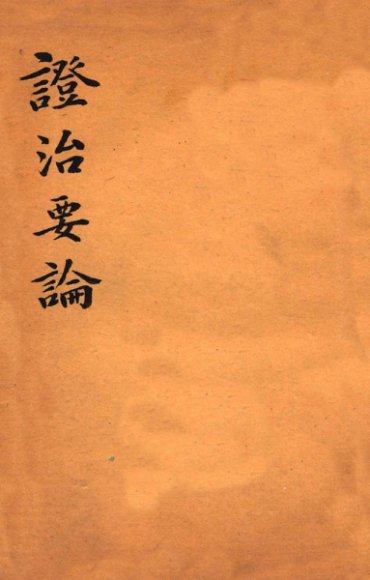 證治要論